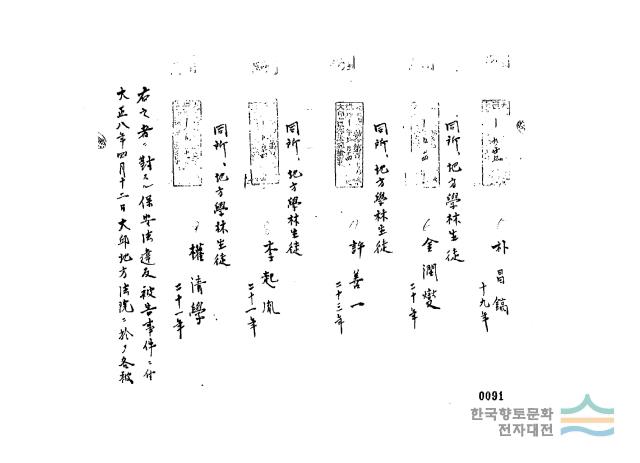 朴昌鎬
十九年
同所、地方學林生徒
金潤燮
二十年
同所、地方學林生徒
許善一
二十三年
同所、地方學林生徒
李起胤
二十一年
同所、地方學林生徒
權清學
二十一年
右之者ニ對スル保安法違反被告事件ニ付
大正八年四月十二日大邱地方法院ニ於テ各被
0091
한국향토문화
전자대전